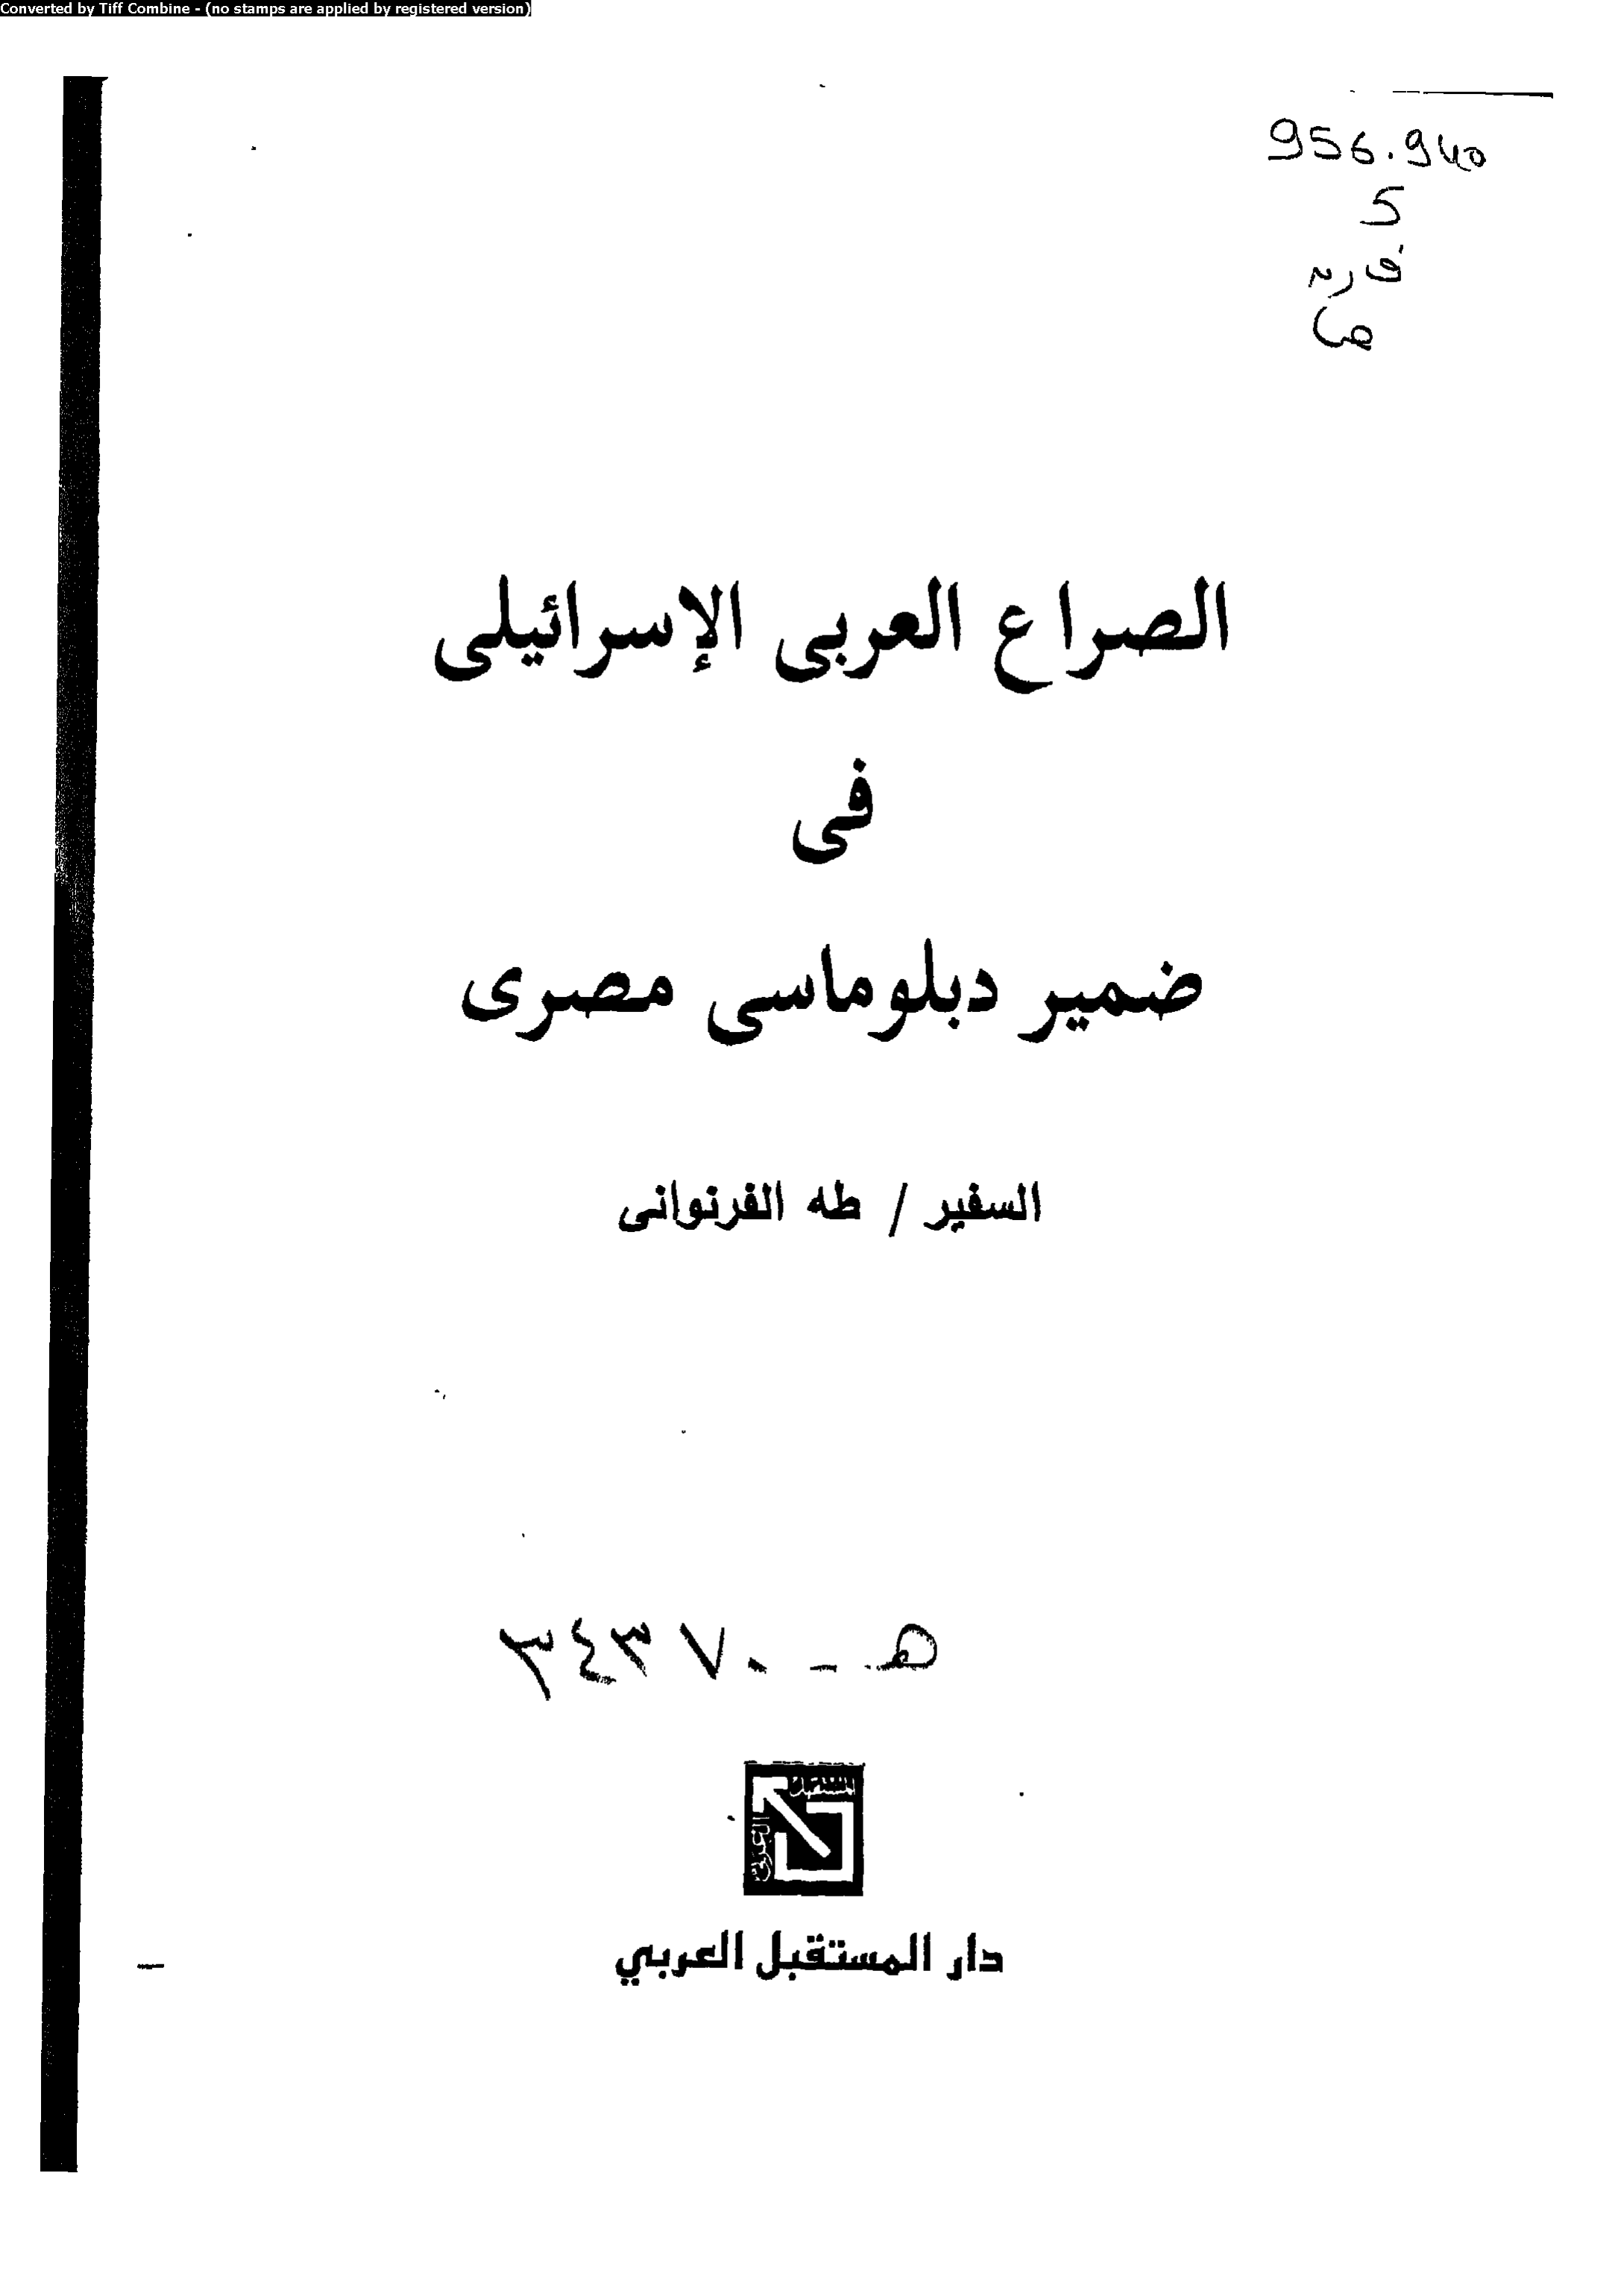 Converted by Tiff Combine - (no stamps are applied by registered version)
956.940
5
الصراع العربى الإسرائيلى
فى
ضمير دبلوماسى مصرى
السفير / طه الفرنوانى
هـ - ٣٤٣٧٠
المستقبل
العربي
دار المستقبل العربي